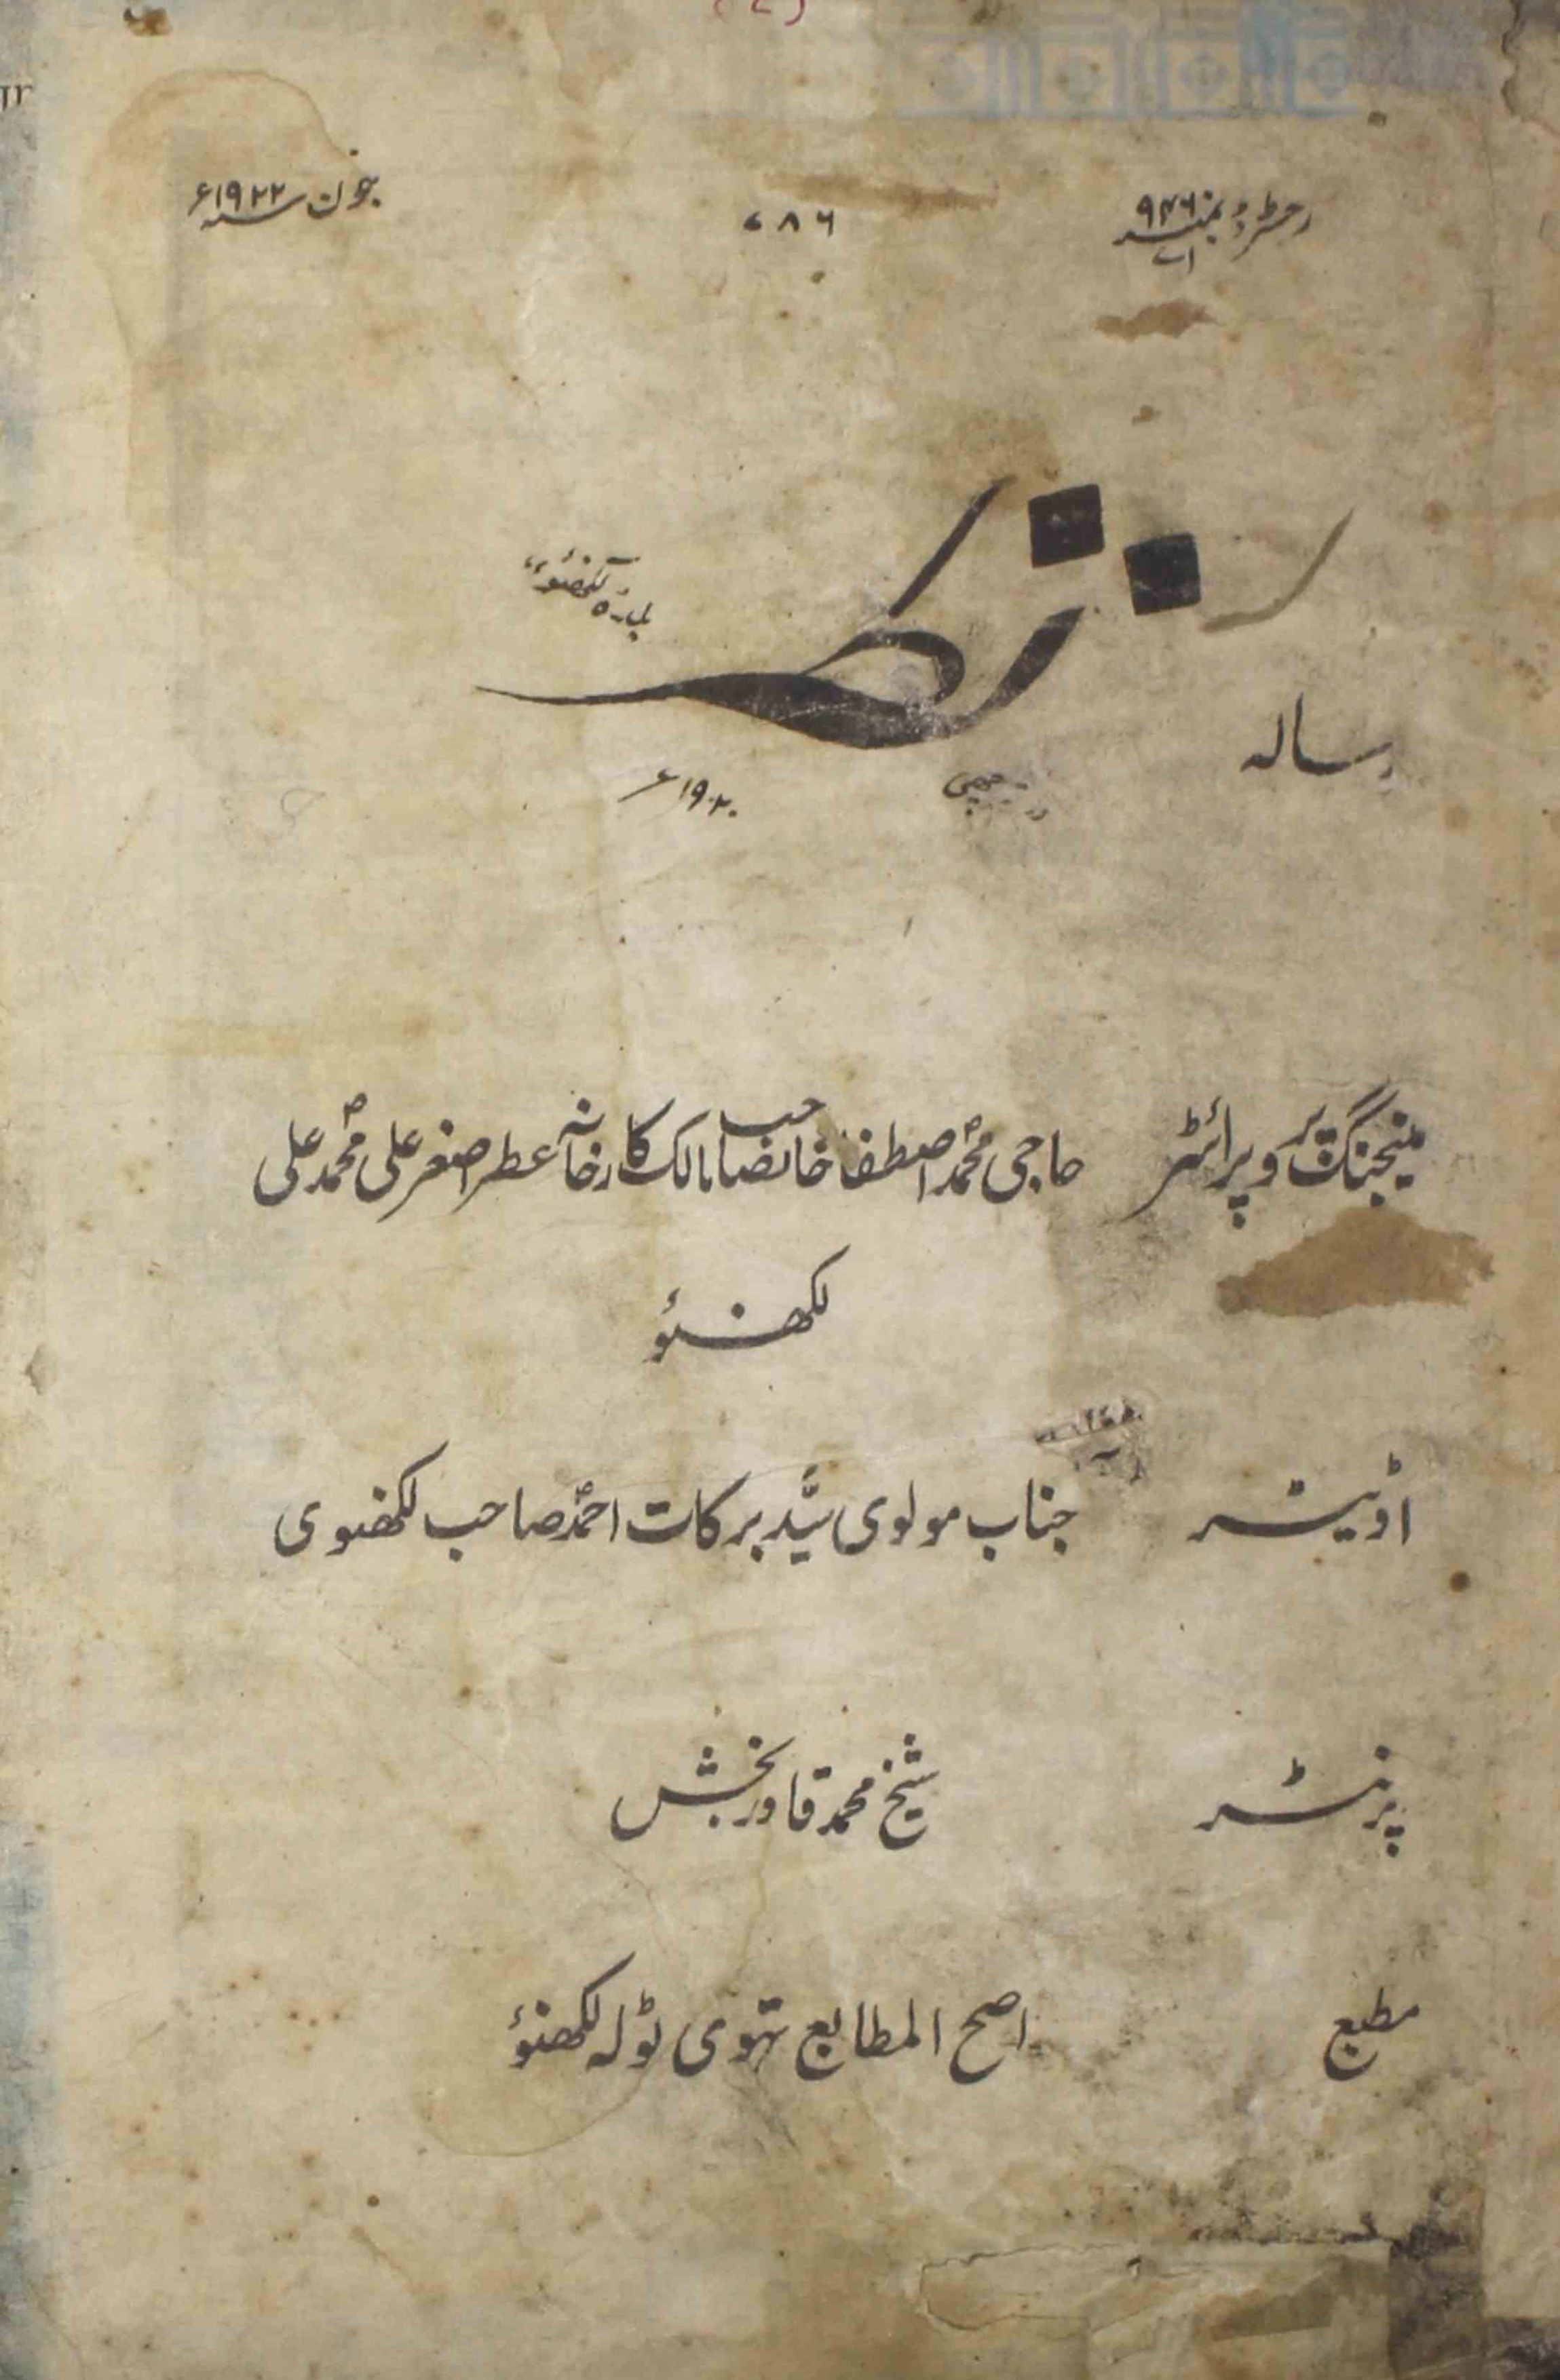 رجسٹرڈ نمبر ۹۴۶
اے
۷۸۶
جون سنہ ۱۹۲۲ء
بلدۂ لکھنؤ
رسالہ
نظر
۱۹۲۰ء
منیجنگ پروپرائٹر حاجی محمد اصطفا خانصاحب مالک کارخانہ عطر اصغر علی محمد علی
لکھنؤ
اڈیٹر جناب مولوی سیّد برکات احمد صاحب لکھنوی
پرنٹر شیخ محمد قادر بخش
مطبع اصح المطابع تھوی ٹولہ لکھنؤ